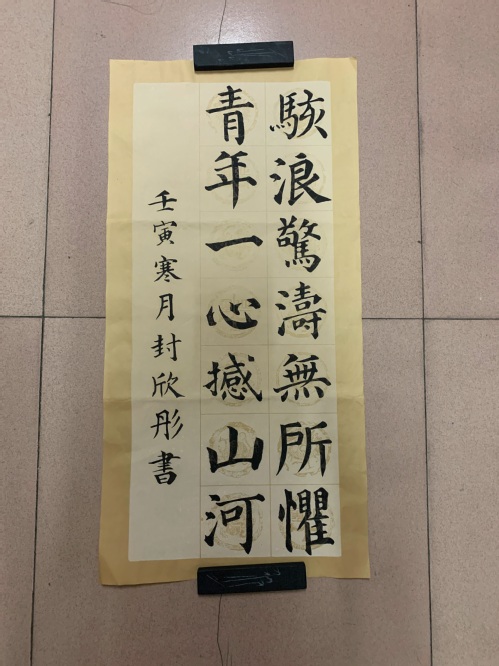 駭浪驚濤無所懼
青年一心撼山河
壬寅寒月封欣彤書